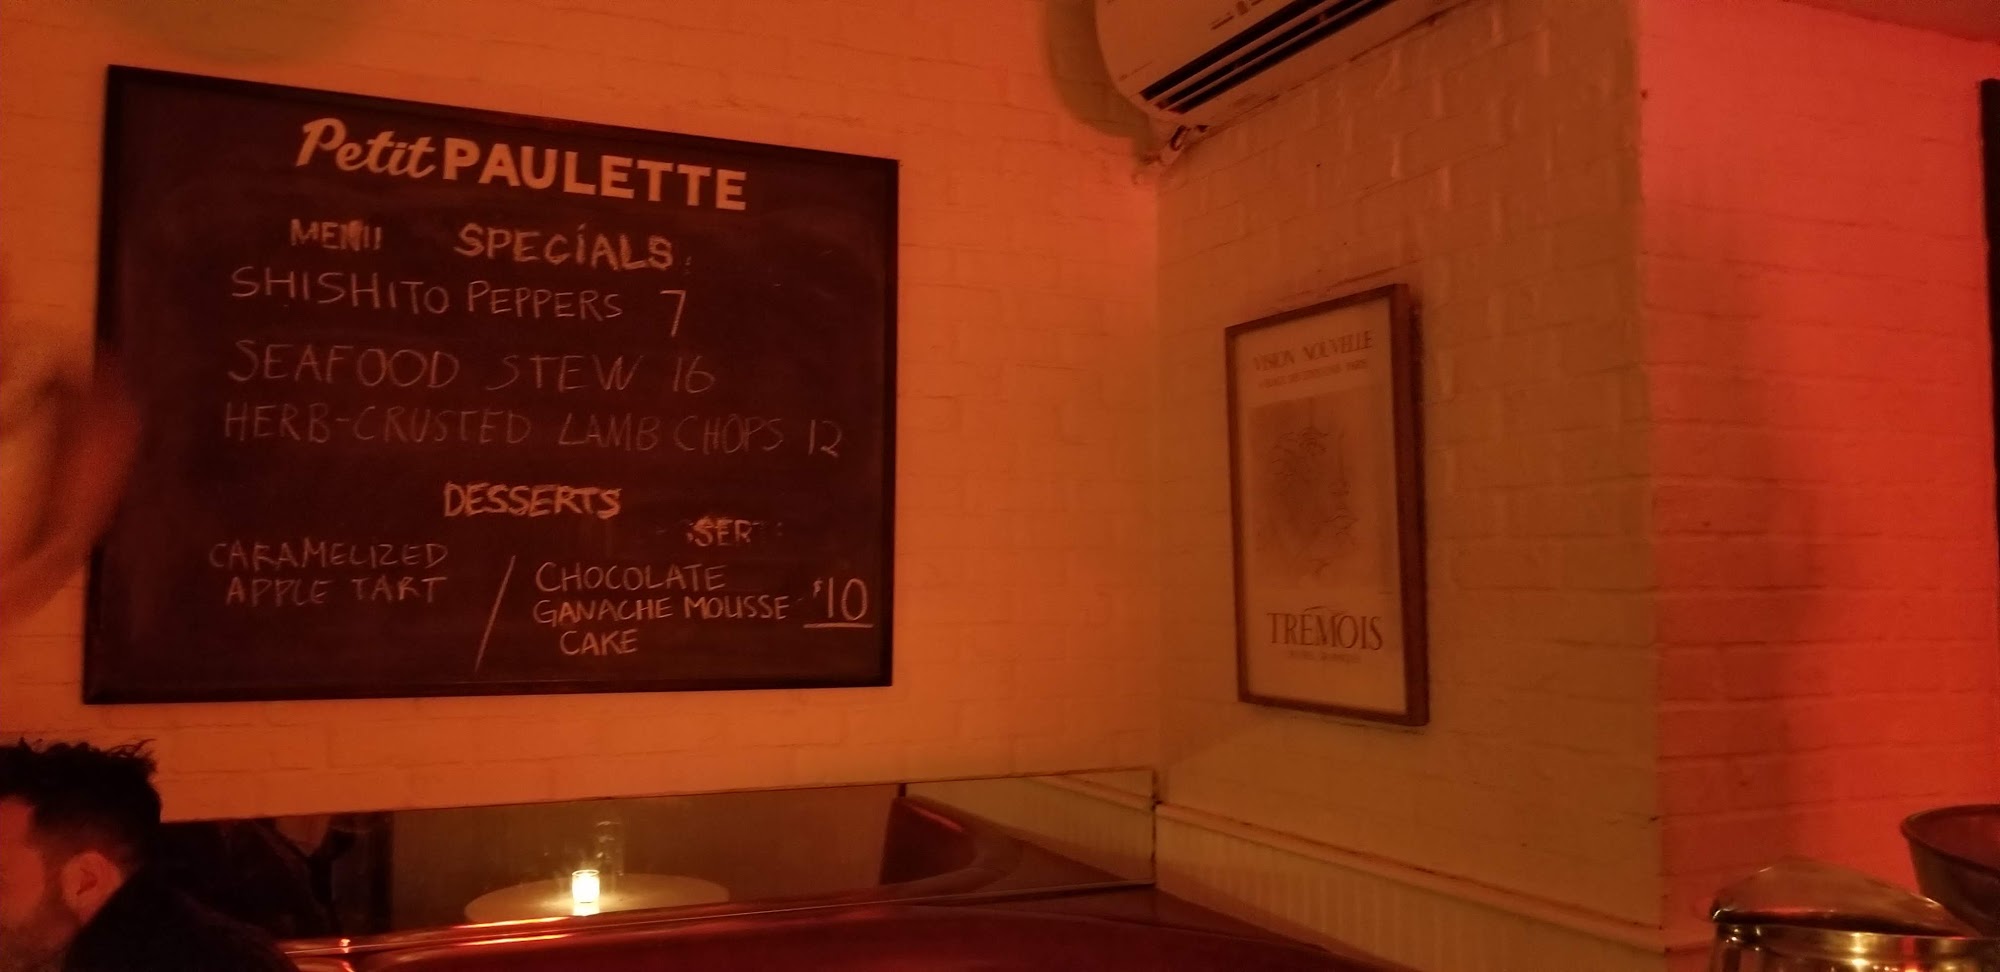 Petit PAULETTE
MENU SPECIALS:
SHISHITO PEPPERS 7
SEAFOOD STEW 16
HERB-CRUSTED LAMB CHOPS 12
DESSERTS
SER
CARAMELIZED
APPLE TART
/ CHOCOLATE
GANACHE MOUSSE $10
CAKE
VISION NOUVELLE
TRÉMOIS